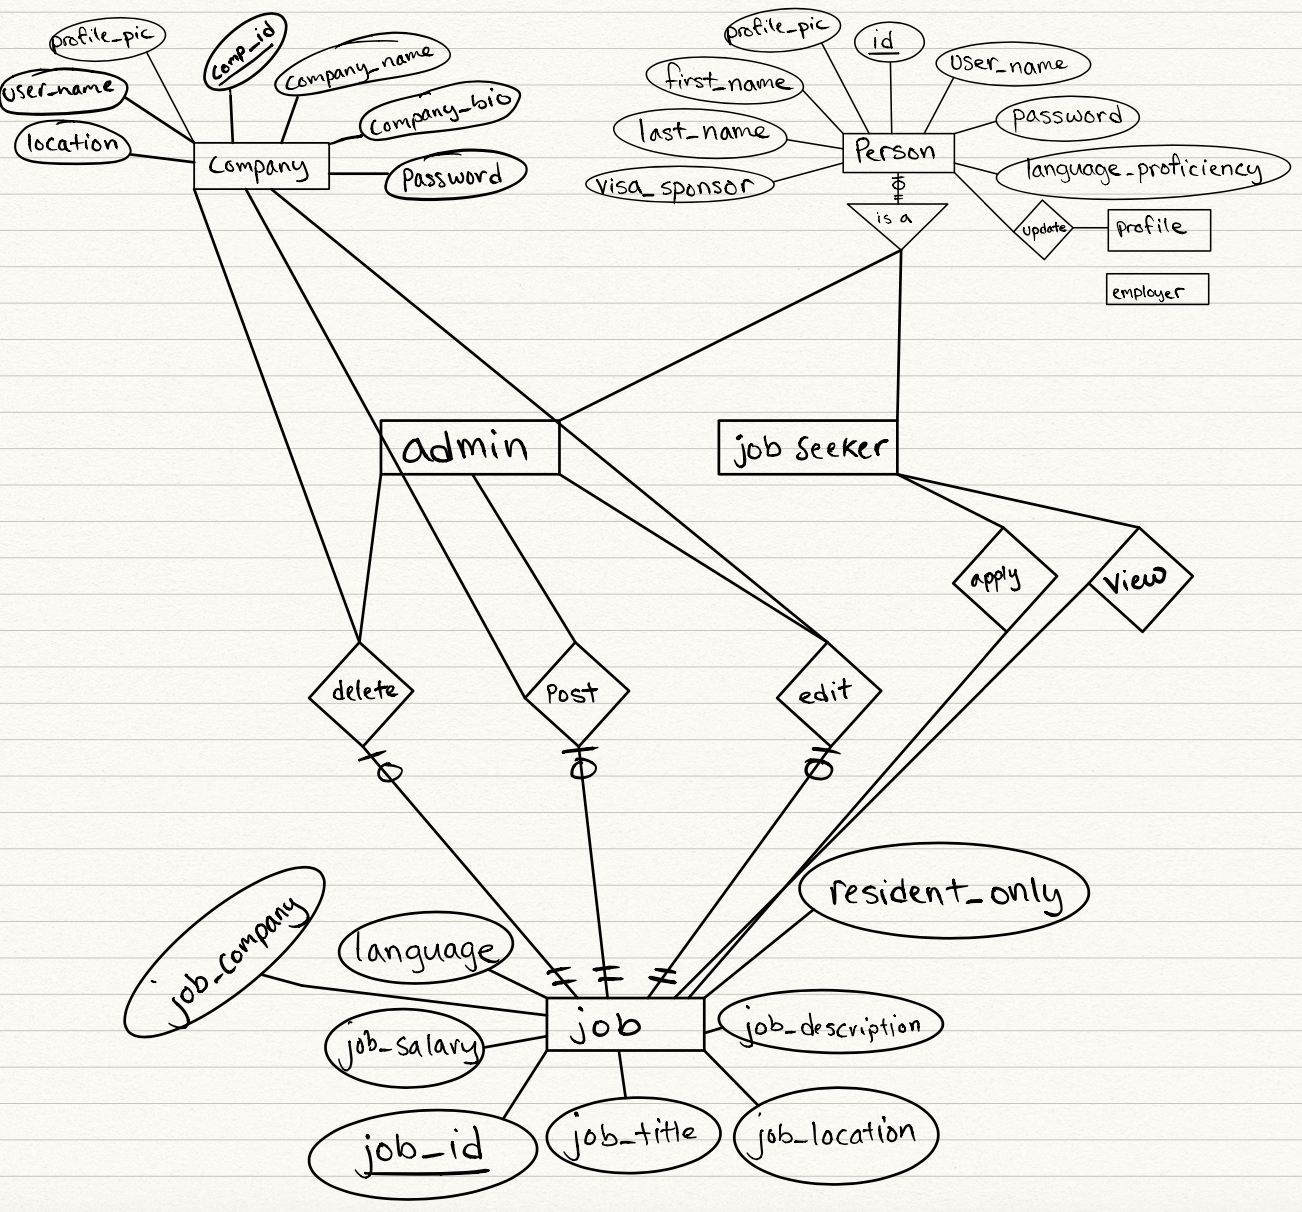 profile_pic
comp_id
company_name
user_name
company_bio
location
Company
Password
profile_pic
id
user_name
first_name
last_name
Password
Person
visa_sponsor
language_proficiency
is a
update
profile
employer
admin
job seeker
apply
View
delete
Post
edit
job_company
language
resident_only
job
job_description
job_salary
job_id
job_title
job_location